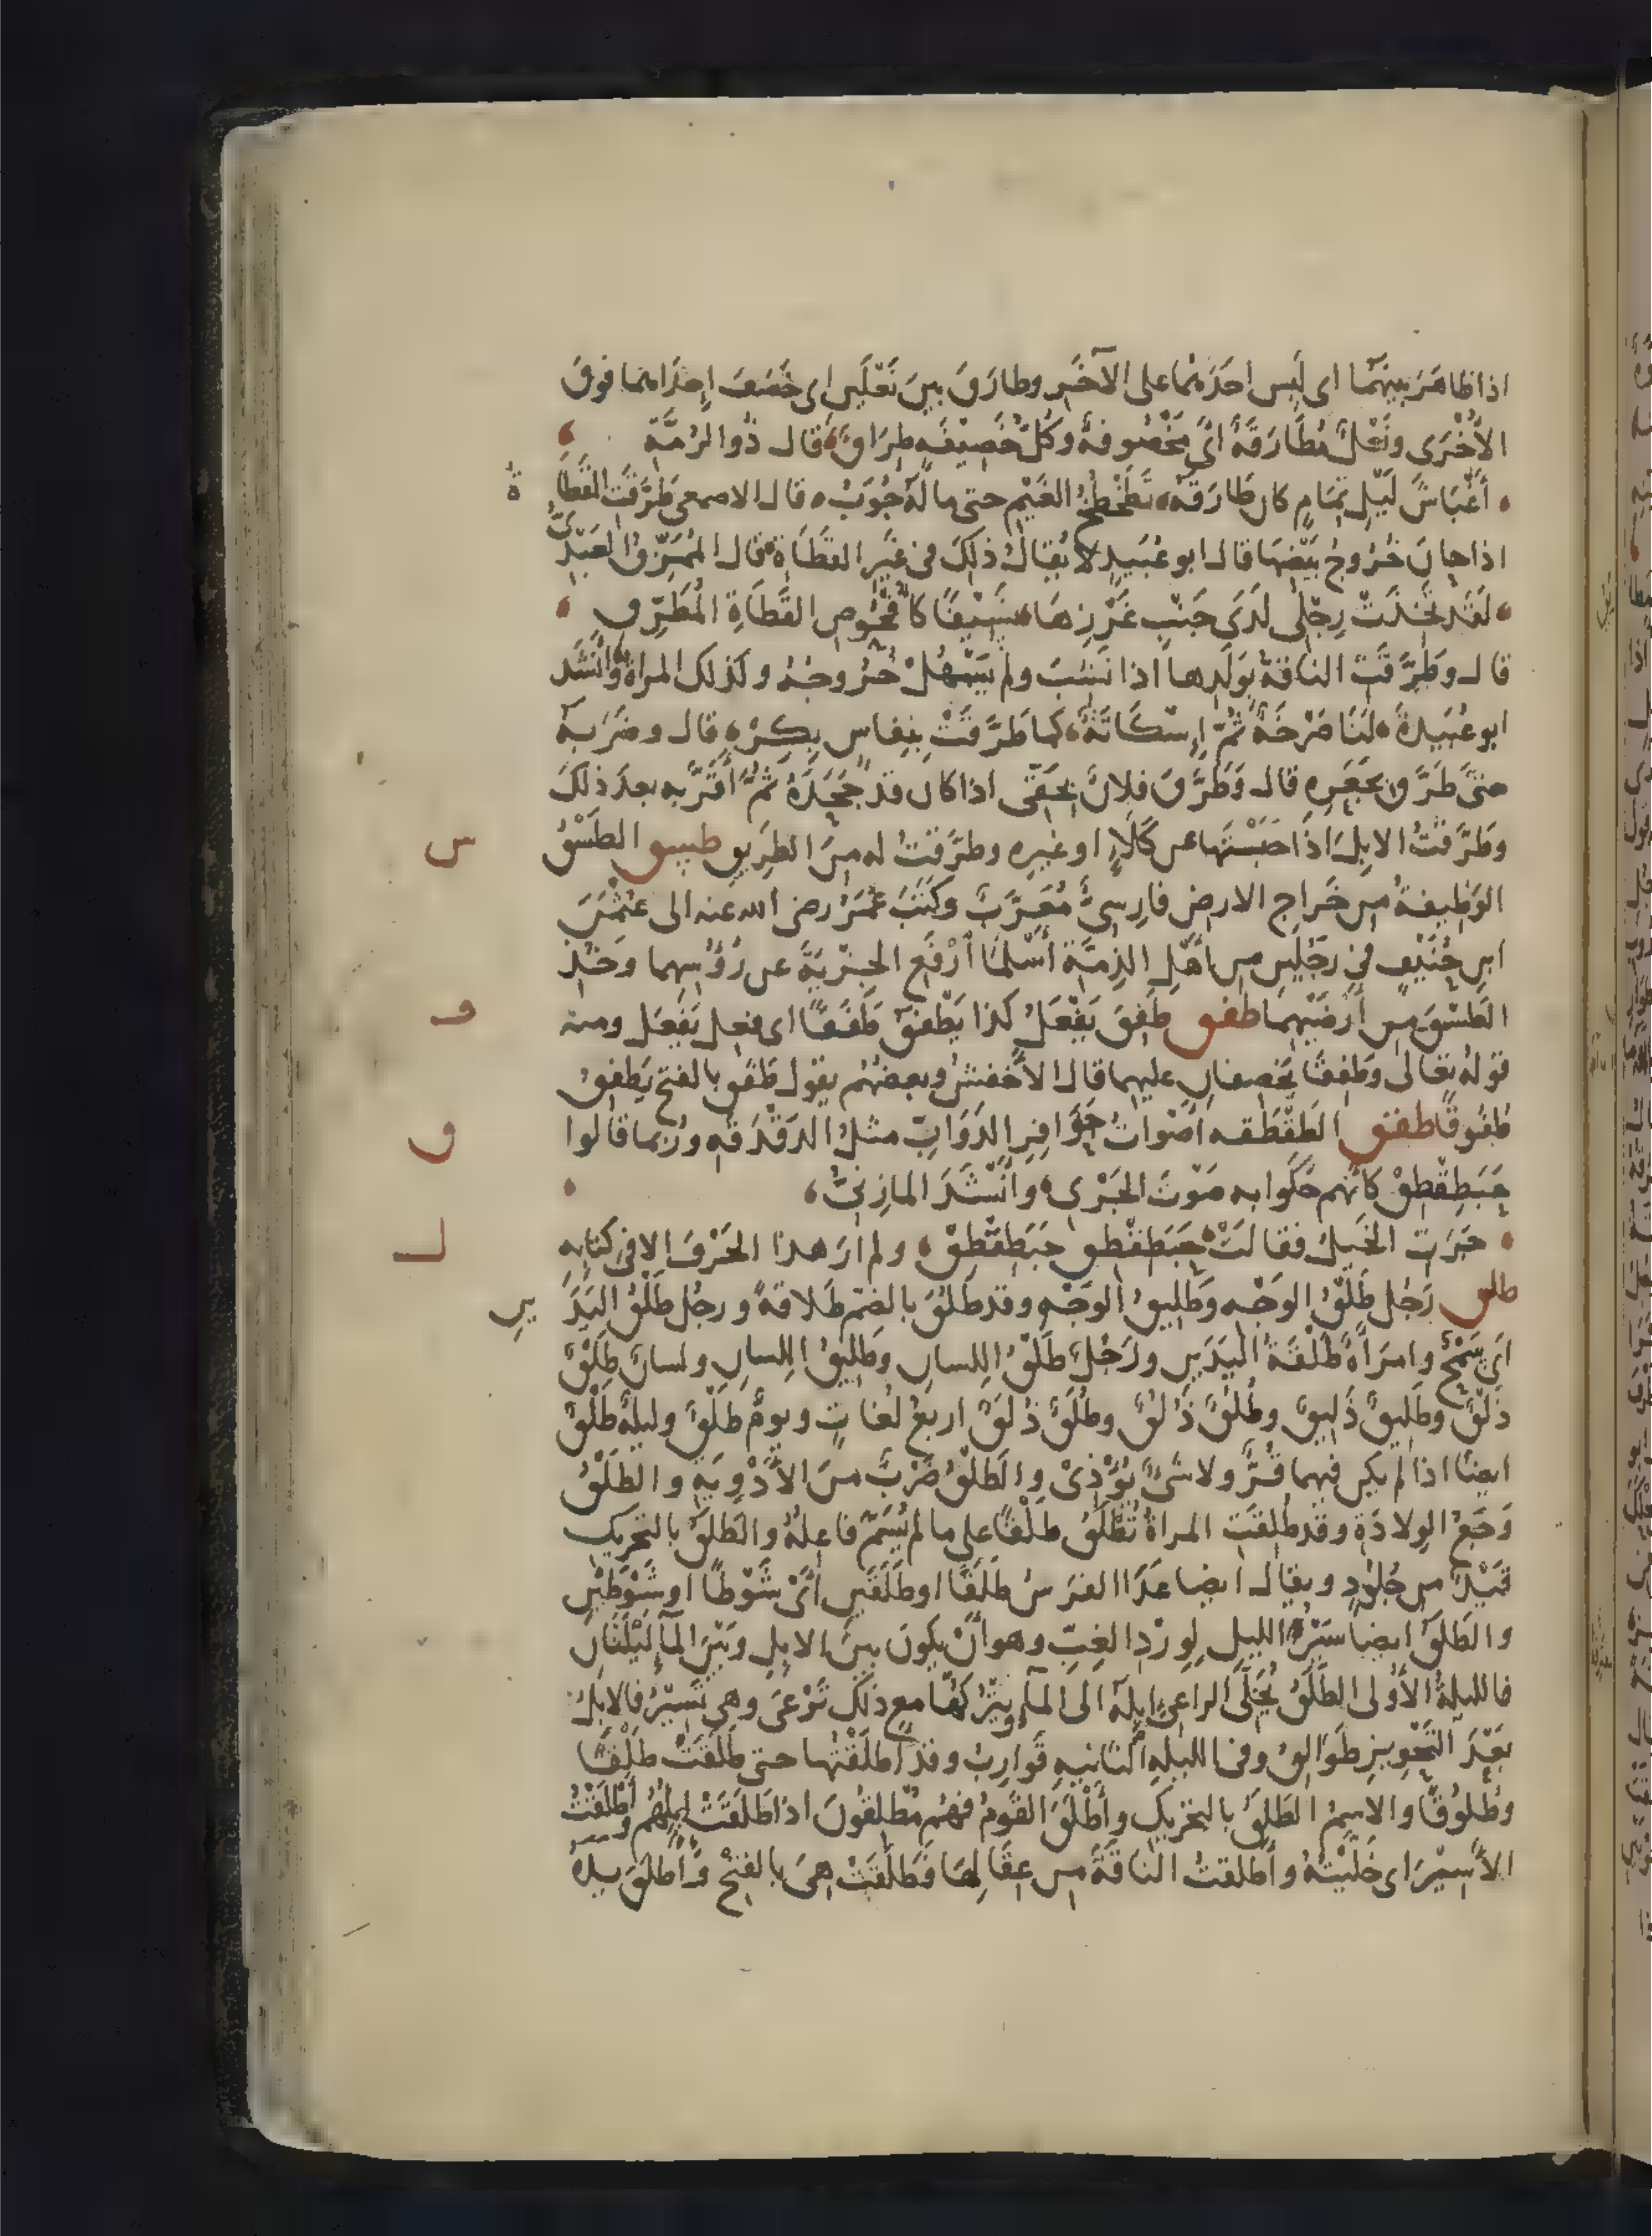 اذا ظاهَرَ بينهُمَا اى لَبِس احدَهُمَا على الآخَرِ وطارَقَ بينَ نَعْلَين اى خَصَفَ اِحدَاهما فوقَ
الأُخْرَى ونَعْلٌ مُطَارَقَةٌ اىْ مَخْصُوفةٌ وكلُّ خَصِيْفَه طِرَاقٌ قال ذُوا الرُمَّةِ
أَغْبَاشَ لَيْلٍ تَمَامٍ كان طَارَقَهُ تَطَخْطُخُ الغَيْمِ حتى ما لَهُ جُوَبُ قال الاصمعى طَرَّقَتِ القَطَا
ةُ
اذا حانَ خُرُوجُ بَيْضِهَا قال ابو عُبَيدٍ لا يُقالُ ذلِكَ فى غَيرِ القَطَاةِ قال المُمَزِّقُ العَبْدِىُّ
لقَد تخَذَتْ رِجْلى لدَى جَنْبِ غَرْزِهَا نَسِيْفًا كأُفْحُوصِ القَطَاةِ المُطَرِّقِ
قال وطَرَّقَتِ الناقةُ بوَلَدِها اذا نَشِبَ ولم يَسْهُلْ خُرُوجُهُ وكذلك المراةُ وأنْشَد
ابو عُبَيدةَ لَنَا صَرْخَةٌ ثُمَّ اِسْكَاتَةٌ كمَا طَرَّقَتْ بنِفاسٍ بِكْرُ قال وضَرَبهُ
حتىَّ طَرَّقَ بجَعْرِهِ قال وَطَرَّقَ فلانٌ بحَقّى اذا كان قد جَحَدَهُ ثُمَّ أَقَرَّ به بعدَ ذلكَ
وطَرَّقْتُ الابِلَ اذَا حَبَسْتَهَا عن كَلَإٍ او غيرِه وطرَّقتُ له مِنَ الطرِيقِ طسق الطَسْقُ
س
الوَظِيفةُ مِن خَراجِ الارضِ فارِسىٌّ مُعَرَّبٌ وكَتَبَ عُمَرُ رضى الله عنه الى عُثْمنَ
ابنِ حُنَيْفٍ فى رَجُلَينِ من اَهْلِ الذِمَّةِ أَسْلَمَا اَرْفَعِ الجِزْيَةَ عن رُؤُسِهِما وخُذِ
الطَسْقَ مِن أَرضَيْهِمَا طفق طَفِقَ يَفْعَلُ كذا يَطْفَقُ طَفَقًا اى فعل يَفعَل ومنه
ف
قولُهُ تعَالى وطَفِقَا يَخصِفانِ عليهِما قال الأَخْفشُ وبعضُهُم يقول طَفَقَ بالفتح يَطفِقُ
طُفُوقًا طقق الطَقْطَقه اَصْوَاتُ حَوَافِرِ الدَوَابِّ مثلُ الدَقْدَقَهِ ورُبما قالوا
ق
حَبَطِقْطِقْ كأنهم حَكَوا به صَوْتَ الجَرْى وأنْشَدَ المازِنىُّ
جَرَتِ الخَيلُ فقالَتْ حَبَطِقْطِقْ حَبَطِقْطِقْ ولم أرَ هذا الحَرْفَ الا فى كتابهِ
ل
طلق رَجُل طَلْقُ الوَجْهِ وطَلِيقُ الوَجْهِ وقد طَلُقَ بالضمّ طَلاقةً ورجُل طَلْقُ اليَدَ
ينِ
اَىْ سَمْحٌ وامرَأَةٌ طَلْقَةُ اليَدَينِ ورَجُلٌ طَلْقُ اللسانِ وطَلِيقُ اللِسانِ ولسانٌ طَلْقٌ
ذَلْقٌ وطَلِيقٌ ذَلِيقٌ وطُلُقٌ ذُلُقٌ وطُلَقٌ ذُلَقٌ اربعُ لُغاتٍ ويومٌ طَلْقٌ وليلةٌ طَلْقٌ
ايضًا اذا لم يكن فيهما قُرٌّ ولا شىءٌ يُؤْذِىْ والطَلْقُ ضَرْبٌ مِنَ الأَدْوِيَةِ والطَلْقُ
وَجَعُ الوِلادَةِ وقد طُلِقَتِ المراةُ تُطْلَقُ طَلْقًا على ما لم يُسَمَّ فاعِلُهُ والطَلَقُ بالتحريكِ
قَيْدٌ من جُلُودٍ ويقال ايضا عَدَا الفرسُ طَلَقًا او طَلَقَينِ أىْ شَوْطًا او شَوْطَيْنِ
والطَلَقُ ايضًا سَيْرُ الليلِ لِوِرْدِ الغِبِّ وهو أنْ يكونَ بينَ الابِلِ وبَيْنَ المآءِ لَيْلَتَانِ
فالليلةُ الأُولى الطَلَقُ يُخَلِّى الراعىْ اِبِلَهُ الى المآءِ ويَتْرُكُهَا مع ذلكَ تَرْعَى وهى تَسِيْرُ فالابِلُ
بَعْدَ التَحْوِيزِ طَوَالِقُ وفى الليلهِ الثانيهِ قَوارِبُ وقد أطلَقْتُها حتى طَلَقَتْ طَلْقًا
وطُلُوقًا والاسمُ الطَلَقُ بالتحرِيكِ وأَطْلَقَ القَومُ فهُم مُطلِقُونَ اذا طَلَقَتْ اِبِلُهُم وأَطْلَقْتُ
الأَسِيْرَ اى خَلَّيْتُهُ وأَطلقتُ الناقَةَ مِن عِقَالِهَا فَطَلَقَتْ هىَ بالفتْحِ وَأَطْلَقَ يدَهُ